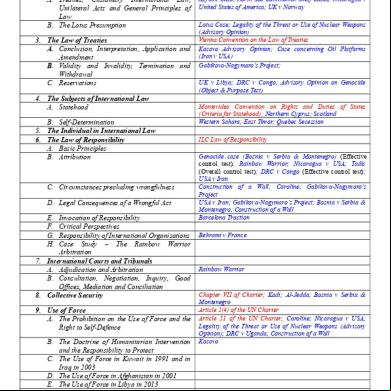 A. Treaties, Customary International Law,
Unilateral Acts and General Principles of
Law
United States of America; UK v Norway
B. The Lotus Presumption
Lotus Case; Legality of the Threat or Use of Nuclear Weapons
(Advisory Opinion)
3. The Law of Treaties
Vienna Convention on the Law of Treaties
A. Conclusion, Interpretation, Application and
Amendment
Kosovo Advisory Opinion; Case concerning Oil Platforms
(Iran v USA)
B. Validity and Invalidity, Termination and
Withdrawal
Gabčikovo-Nagymaro's Project;
C. Reservations
UK v Libya; DRC v Congo; Advisory Opinion on Genocide
(Object & Purpose Test)
4. The Subjects of International Law
A. Statehood
Montevideo Convention on Rights and Duties of States
(Criteria for Statehood); Northern Cyprus; Scotland
B. Self-Determination
Western Sahara; East Timor; Quebec Secession
5. The Individual in International Law
6. The Law of Responsibility
ILC Law of Responsibility
A. Basic Principles
B. Attribution
Genocide case (Bosnia v Serbia & Montenegro) (Effective
control test); Rainbow Warrior; Nicaragua v USA; Tadic
(Overall control test); DRC v Congo (Effective control test);
USA v Iran
C. Circumstances precluding wrongfulness
Construction of a Wall; Caroline; Gabčikovo-Nagymaro's
Project
D. Legal Consequences of a Wrongful Act
USA v Iran; Gabčikovo-Nagymaro's Project; Bosnia v Serbia &
Montenegro; Construction of a Wall
E. Invocation of Responsibility
Barcelona Traction
F. Critical Perspectives
G. Responsibility of International Organisations
Behrami v France
H. Case Study – The Rainbow Warrior
Arbitration
7. International Courts and Tribunals
A. Adjudication and Arbitration
Rainbow Warrior
B. Consultation, Negotiation, Inquiry, Good
Offices, Mediation and Conciliation
8. Collective Security
Chapter VII of Charter; Kadi; Al-Jedda; Bosnia v Serbia &
Montenegro
9. Use of Force
Article 2(4) of the UN Charter
A. The Prohibition on the Use of Force and the
Right to Self-Defence
Article 51 of the UN Charter; Caroline; Nicaragua v USA;
Legality of the Threat or Use of Nuclear Weapons (Advisory
Opinion); DRC v Uganda; Construction of a Wall
B. The Doctrine of Humanitarian Intervention
and the Responsibility to Protect
Kosovo
C. The Use of Force in Kuwait in 1991 and in
Iraq in 2003
D. The Use of Force in Afghanistan in 2001
E. The Use of Force in Libya in 2013